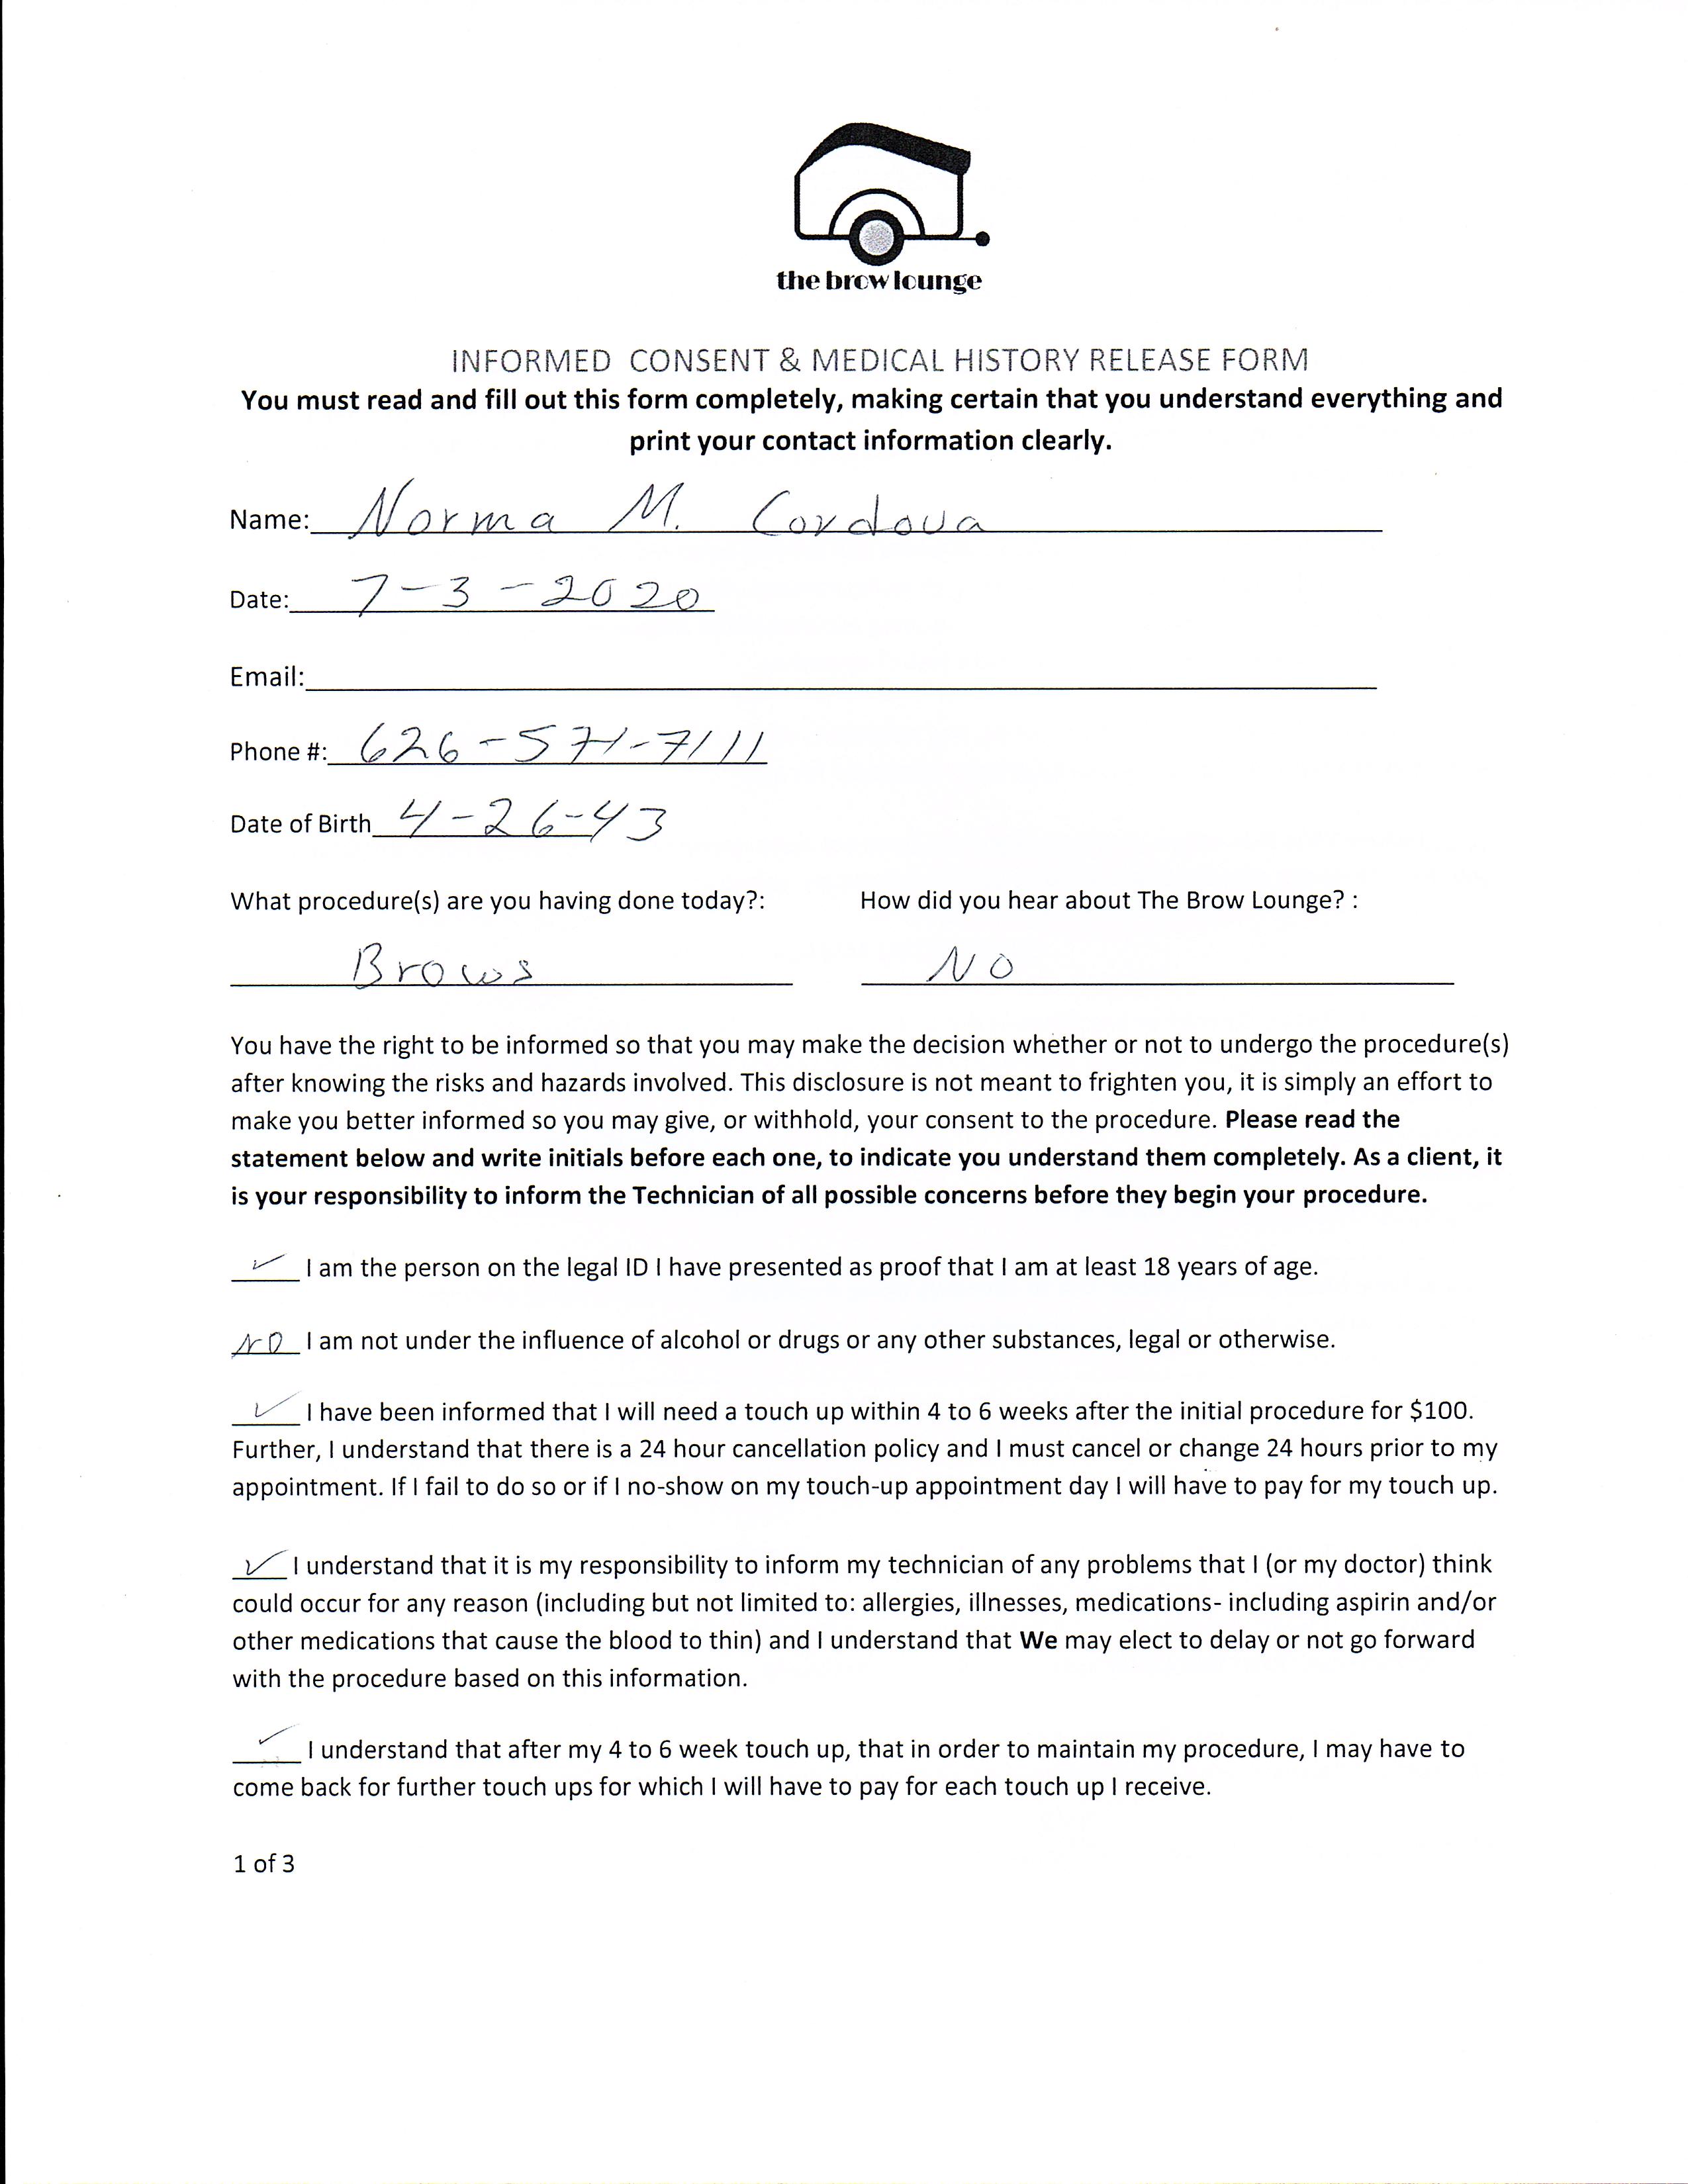 the brow lounge
INFORMED CONSENT & MEDICAL HISTORY RELEASE FORM
You must read and fill out this form completely, making certain that you understand everything and
print your contact information clearly.
Name: Norma M. Cordova
Date: 7-3-2020
Email:
Phone #: 626-571-7111
Date of Birth 4-26-43
What procedure(s) are you having done today?: How did you hear about The Brow Lounge? :
Brows NO
You have the right to be informed so that you may make the decision whether or not to undergo the procedure(s)
after knowing the risks and hazards involved. This disclosure is not meant to frighten you, it is simply an effort to
make you better informed so you may give, or withhold, your consent to the procedure. Please read the
statement below and write initials before each one, to indicate you understand them completely. As a client, it
is your responsibility to inform the Technician of all possible concerns before they begin your procedure.
✓ I am the person on the legal ID I have presented as proof that I am at least 18 years of age.
NO I am not under the influence of alcohol or drugs or any other substances, legal or otherwise.
✓ I have been informed that I will need a touch up within 4 to 6 weeks after the initial procedure for $100.
Further, I understand that there is a 24 hour cancellation policy and I must cancel or change 24 hours prior to my
appointment. If I fail to do so or if I no-show on my touch-up appointment day I will have to pay for my touch up.
✓ I understand that it is my responsibility to inform my technician of any problems that I (or my doctor) think
could occur for any reason (including but not limited to: allergies, illnesses, medications- including aspirin and/or
other medications that cause the blood to thin) and I understand that We may elect to delay or not go forward
with the procedure based on this information.
✓ I understand that after my 4 to 6 week touch up, that in order to maintain my procedure, I may have to
come back for further touch ups for which I will have to pay for each touch up I receive.
1 of 3